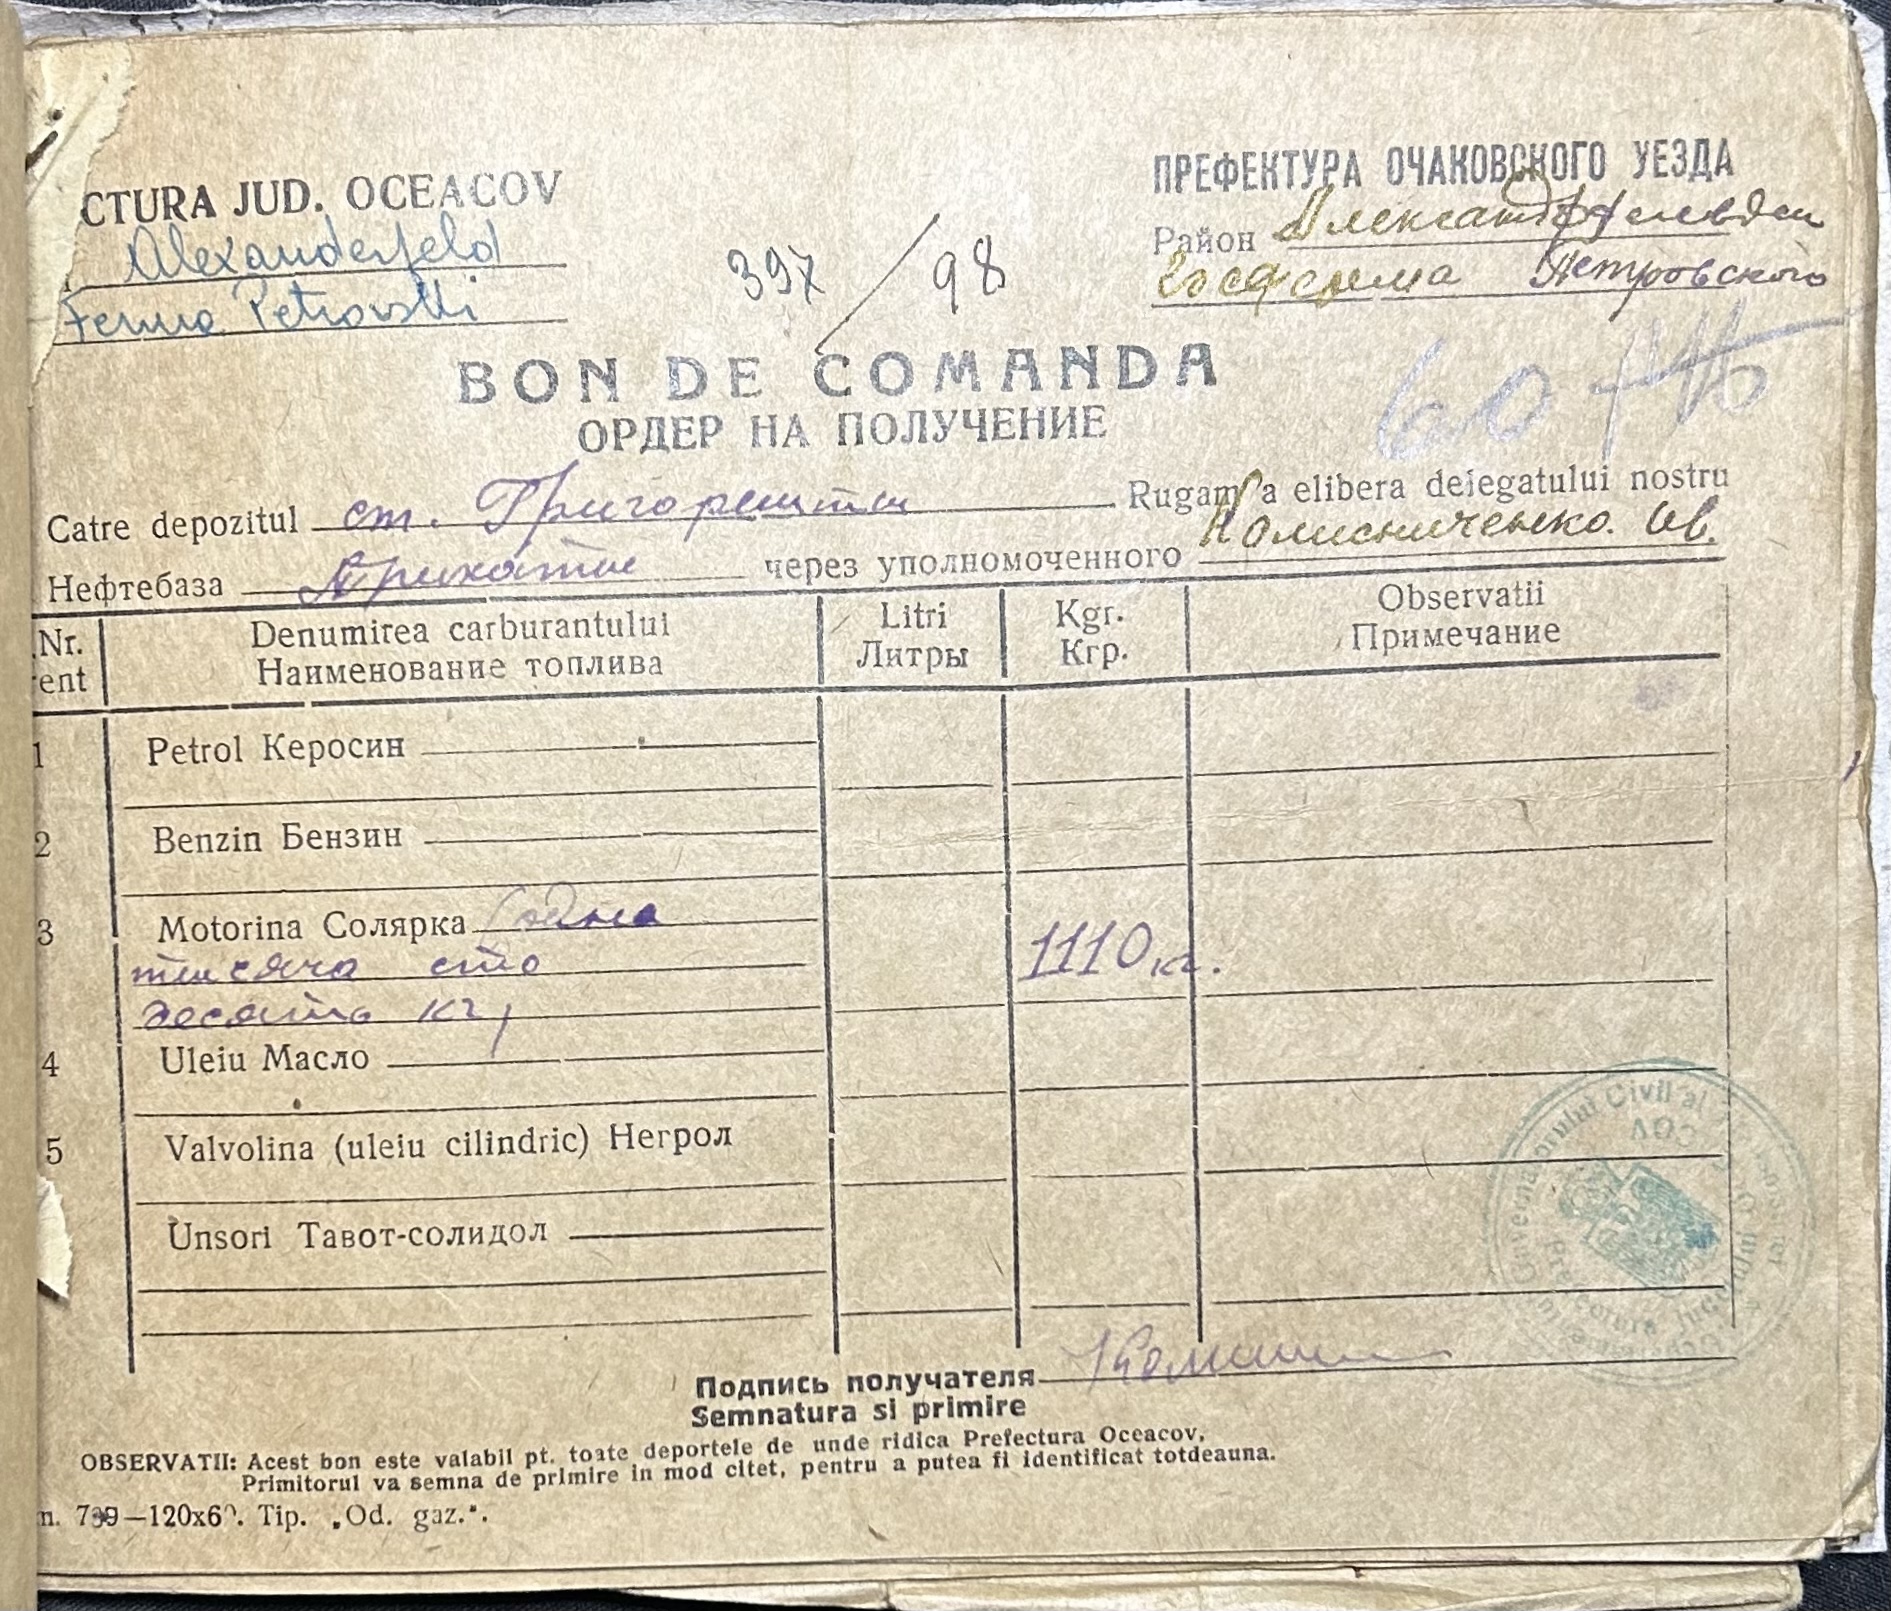 CTURA JUD. OCEACOV
Alexanderfeld
Ferma Petrovski
397 / 98
ПРЕФЕКТУРА ОЧАКОВСКОГО УЕЗДА
Район Александрфельден
Госферма Петровского
BON DE COMANDA
ОРДЕР НА ПОЛУЧЕНИЕ
60
Catre depozitul ст. Григорешти Rugam a elibera delegatului nostru
Нефтебаза Трихаты через уполномоченного Колисниченко. Ив.
Nr. Denumirea carburantului Litri Kgr. Observatii
ent Наименование топлива Литры Кгр. Примечание
1 Petrol Керосин
2 Benzin Бензин
3 Motorina Солярка Одна
тысяча сто 1110 кг.
десять кг,
4 Uleiu Масло
5 Valvolina (uleiu cilindric) Негрол
Unsori Тавот-солидол
Guvernamantului Civil al
Prefectura Judetului
Подпись получателя
Semnatura si primire
OBSERVATII: Acest bon este valabil pt. toate deportele de unde ridica Prefectura Oceacov.
Primitorul va semna de primire in mod citet, pentru a putea fi identificat totdeauna.
Tip. „Od. gaz.".